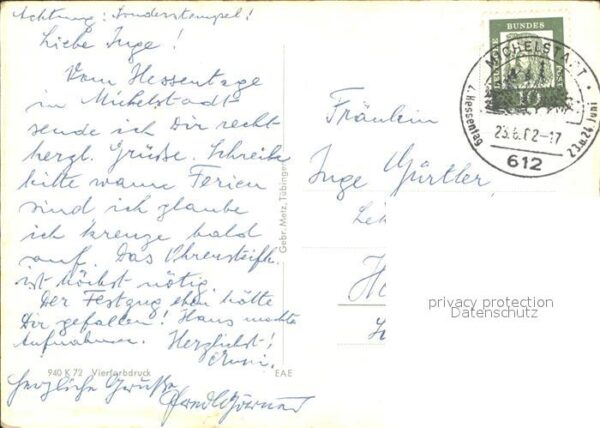 Achtung: Sonderstempel!
Liebe Inge!
Vom Hessentage
in Michelstadt
sende ich Dir recht
herzl. Grüße. Schreibe
bitte wann Ferien
sind ich glaube
ich kreuze bald
auf. Das
ist höchst nötig.
Der Festzug eben hätte
Dir gefallen! Hans machte
Aufnahmen. Herzlichst!
herzliche Grüße
940 K 72 Vierfarbdruck
EAE
Gebr. Metz, Tübingen
DEUTSCHE BUNDESPOST
10
MICHELSTADT
2. Hessentag
23.u.24 Juni
23.6.62-17
612
Fräulein
Inge Gürtler,
privacy protection
Datenschutz